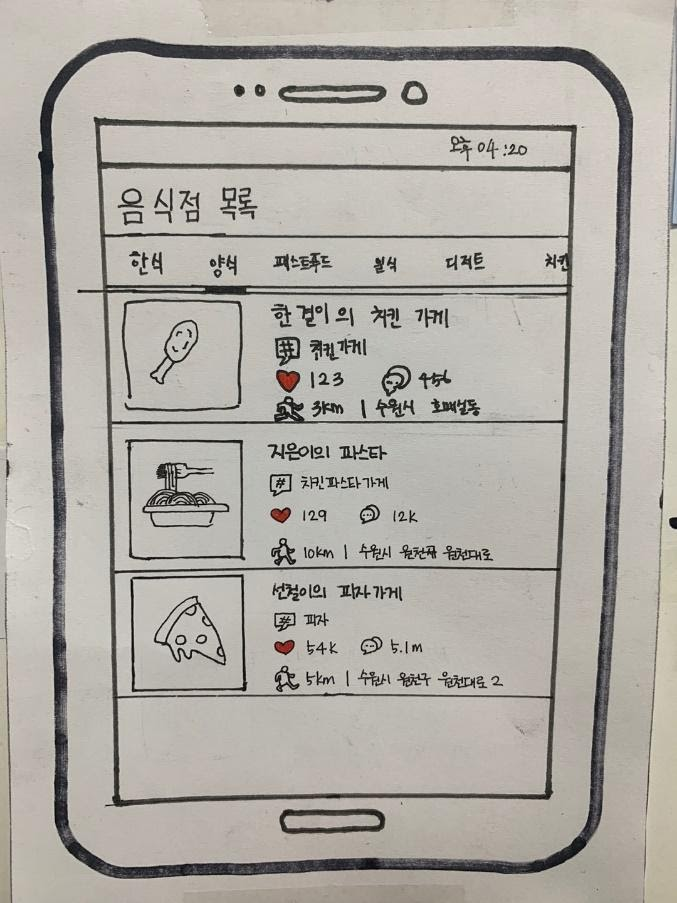 오후 04:20
음식점 목록
한식 양식 패스트푸드 일식 디저트 치킨
한결이의 치킨 가게
# 치킨가게
123 456
3km | 수원시 호매실동
지은이의 파스타
# 치킨파스타가게
129 12K
10km | 수원시 원천대로
선철이의 피자가게
# 피자
54K 5.1m
5km | 수원시 원천구 원천대로 2